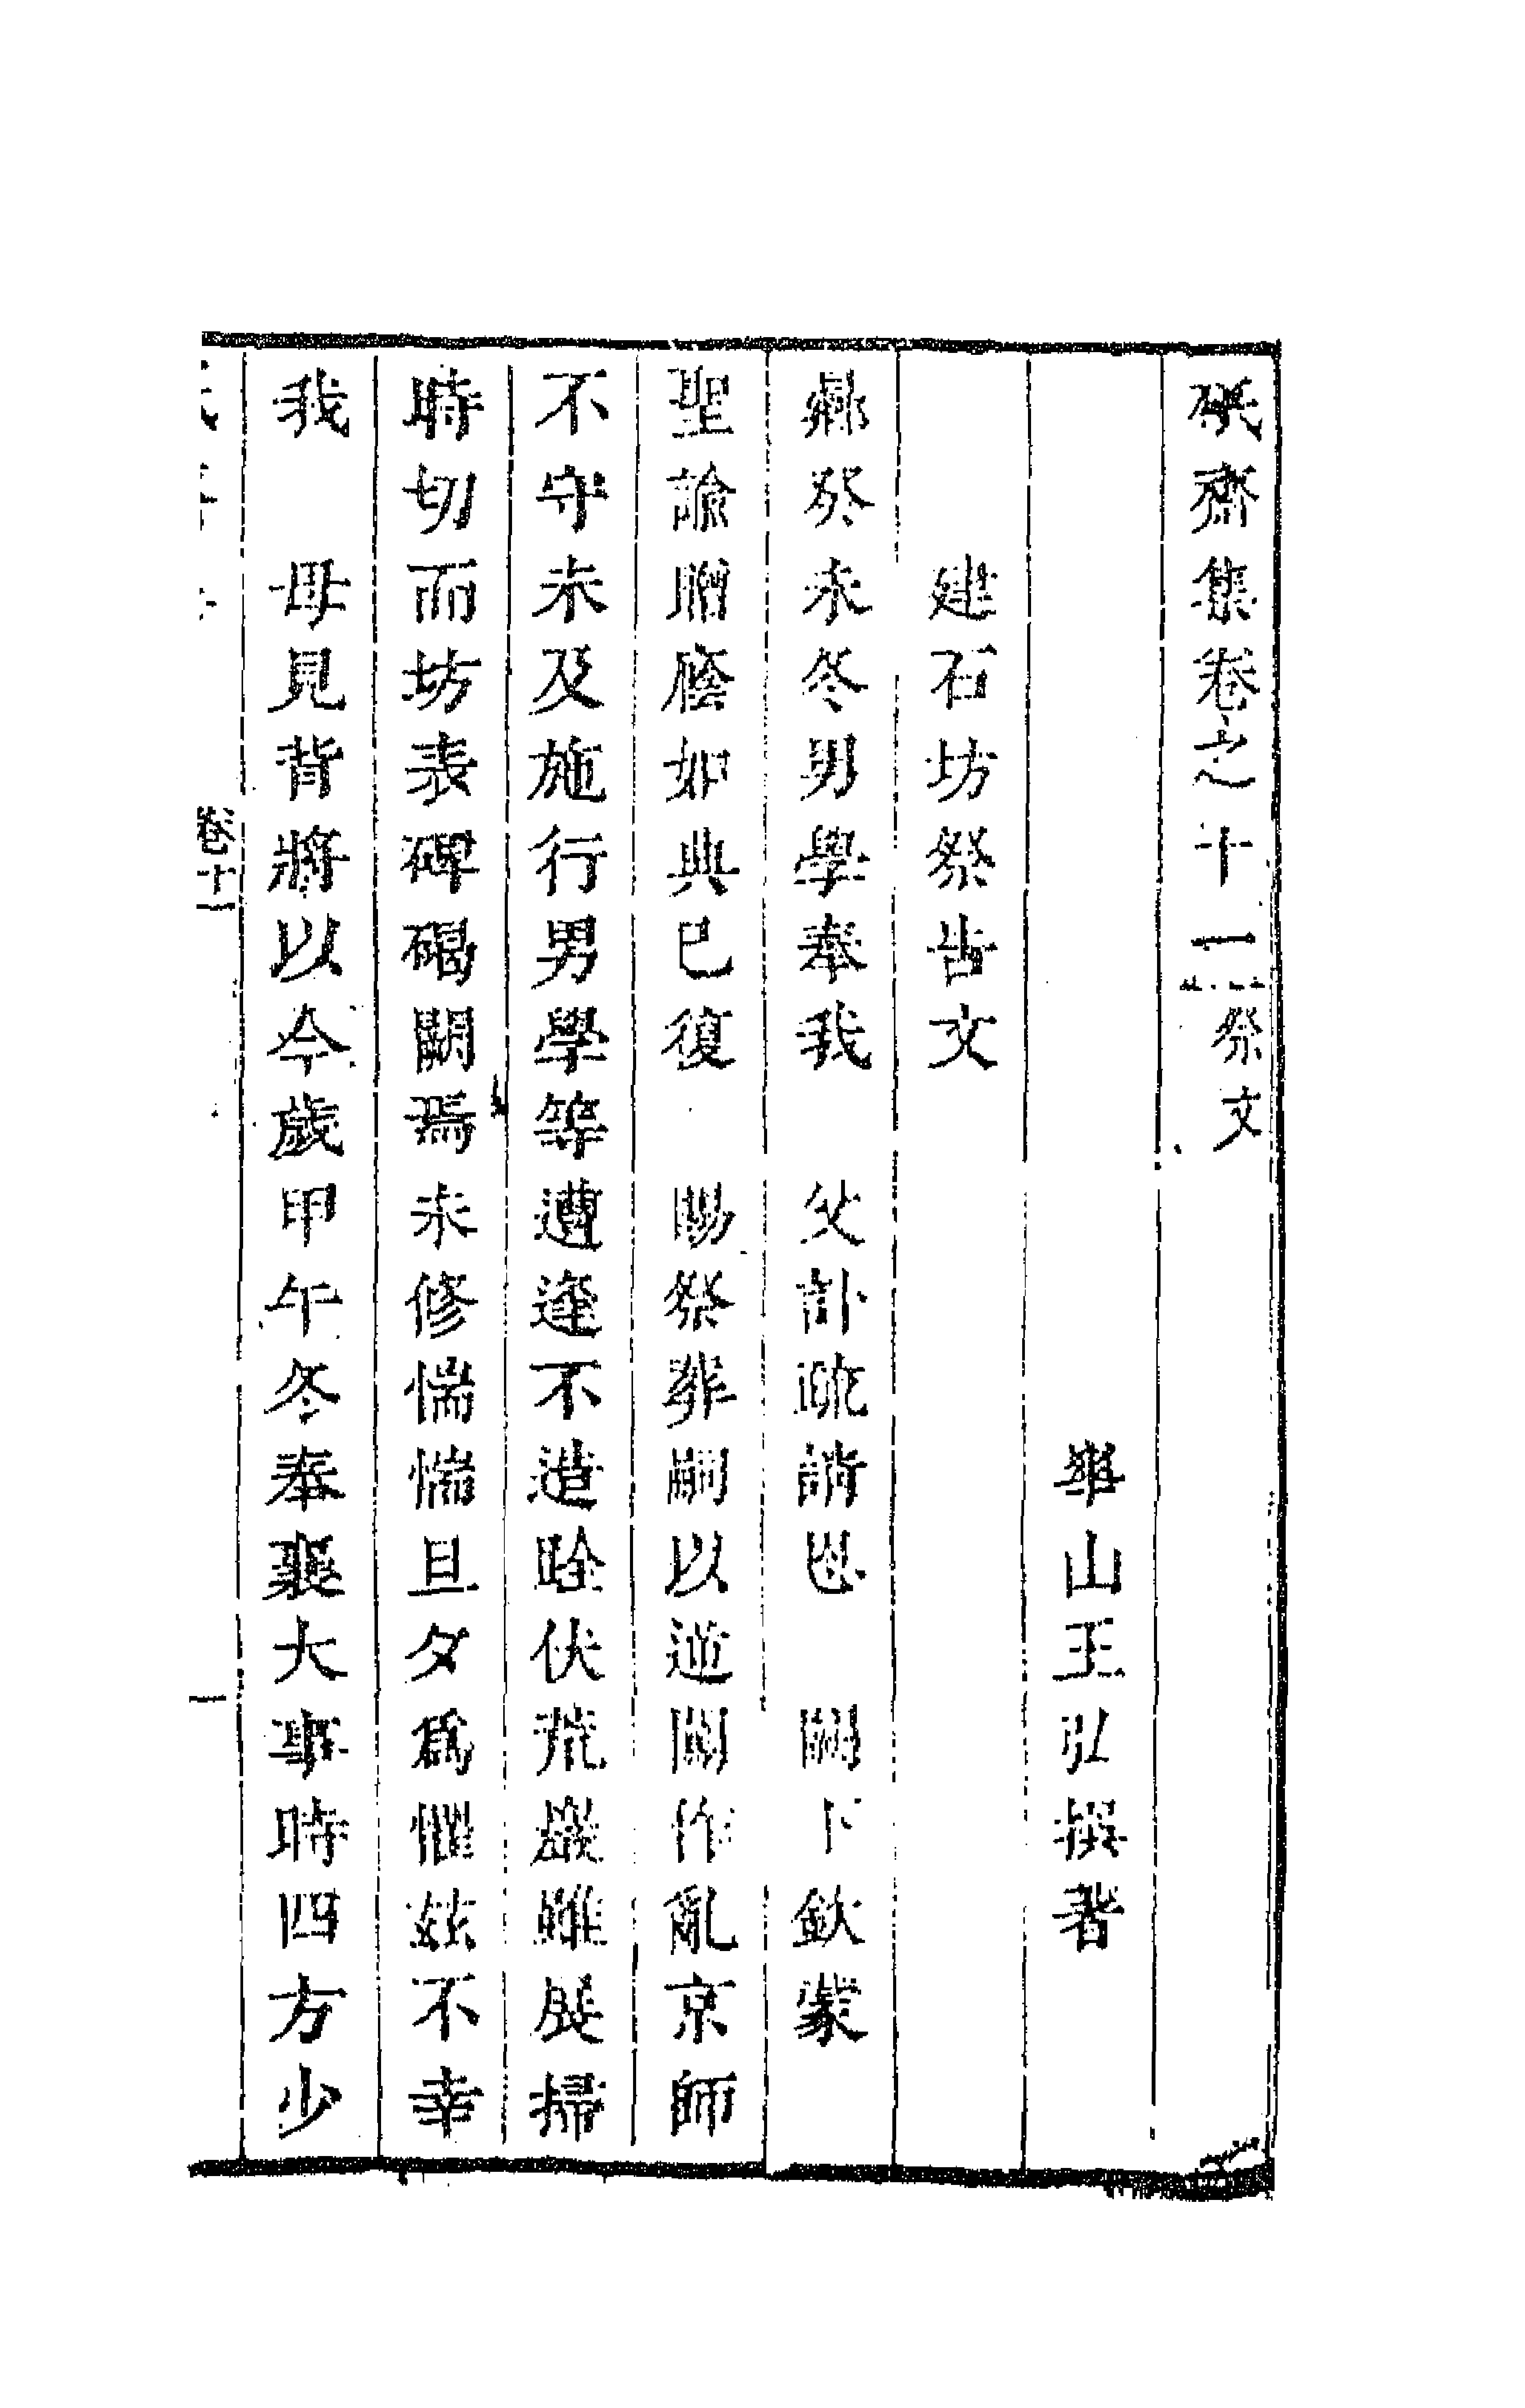 砥齋集卷之十一 祭文
華山王弘撰著
建石坊祭告文
癸未冬男學奉我 父訃疏請恩 闕下欽蒙
聖諭贈廕如典已復 賜祭葬嗣以逆闖作亂京師
不守未及施行男學等遭逢不造跧伏荒巖雖展掃
時切而坊表碑碣闕焉未修惴惴旦夕爲懼茲不幸
我 母見背將以今歲甲午冬奉襄大事時四方少
卷十一 一